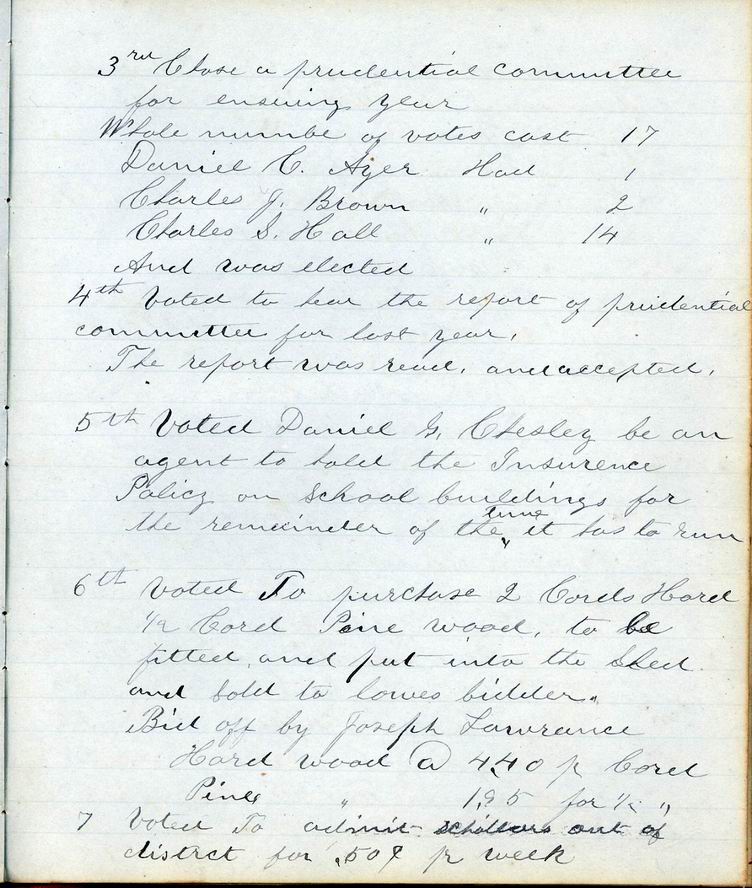 3rd Chose a prudential committee
for ensuing year
Whole numbe of votes cast 17
Daniel C. Ayer Had 1
Charles J. Brown " 2
Charles S. Hall " 14
And was elected
4th Voted to hear the report of prudential
committee for last year.
The report was read, and accepted.
5th Voted Daniel G. Chesley be an
agent to hold the Insurence
Policy on School buildings for
the remainder of the time it has to run
6th Voted To purchase 2 Cords Hard
1/2 Cord Pine wood, to be
fitted, and put into the Shed
and Sold to lowes bidder.
Bid off by Joseph Lawrance
Hard wood @ 4.40 pr Cord
Pine " 1.95 for 1/2 "
7 Voted To admit schollars out of
distrct for .50¢ pr week